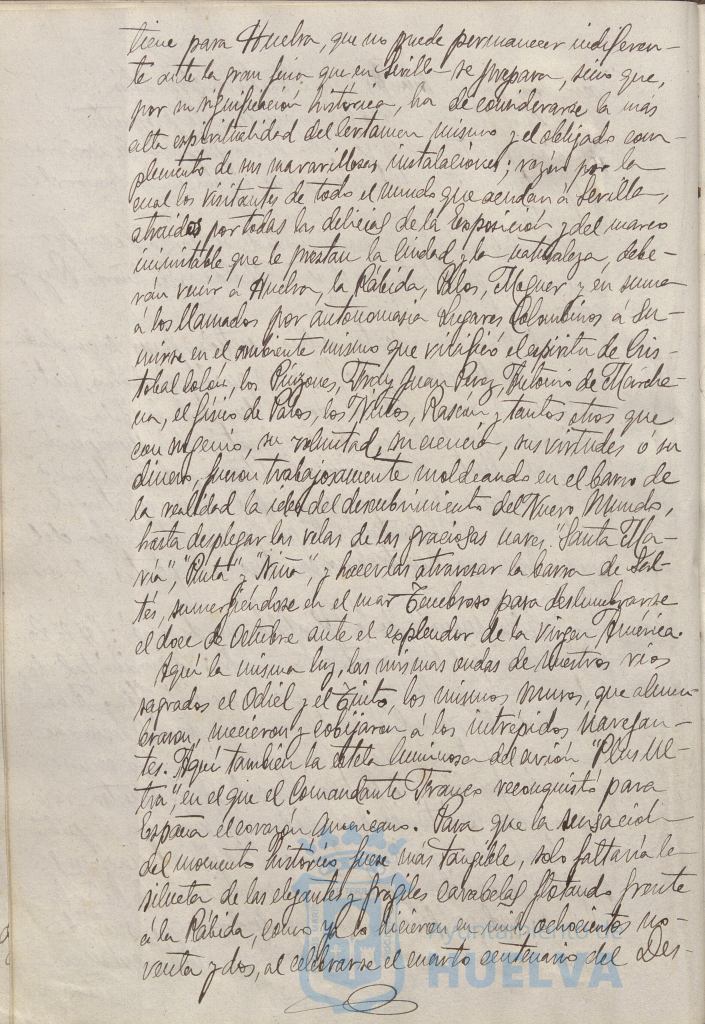 tiene para Huelva, que no puede permanecer indiferen-
te ante la gran feria que en Sevilla se prepara, sino que,
por su significación histórica, ha de considerarse la más
alta espiritualidad del Certamen mismo y el obligado com-
plemento de sus maravillosas instalaciones; razón por la
cual los visitantes de todo el mundo que acudan á Sevilla,
atraidos por todas las delicias de la Exposición y del marco
inimitable que le prestan la Ciudad y la naturaleza, debe-
rán venir á Huelva, la Rábida, Palos, Moguer y en suma
á los llamados por autonomasia Lugares Colombinos á su-
mirse en el ambiente mismo que vivificó el espíritu de Cris-
tobal Colón, los Pinzones, Fray Juan Perez, Antonio de Marche-
na, el físico de Palos, los Niños, Rascón y tantos otros que
con su genio, su voluntad, su ciencia, sus virtudes ó su
dinero, fueron trabajosamente moldeando en el barro de
la realidad la idea del descubrimiento del Nuevo Mundo,
hasta desplegar las velas de las graciosas naves, "Santa Ma-
ría", "Pinta" y "Niña", y hacerlas atravesar la barra de Sal-
tés, sumergiéndose en el mar Tenebroso para deslumbrarse
el doce de Octubre ante el esplendor de la virgen América.
Aquí la misma luz, las mismas ondas de nuestros rios
sagrados el Odiel y el Tinto, los mismos muros, que alum-
braron, mecieron y cobijaron á los intrépidos navegan-
tes. Aquí también la estela luminosa del avión "Plus Ul-
tra", en el que el Comandante Franco reconquistó para
España el corazón Americano. Para que la sensación
del momento histórico fuese más tangible, solo faltaría la
silueta de las elegantes y frágiles carabelas flotando frente
á la Rábida, como ya lo hicieron en mil ochocientos no-
venta y dos, al celebrarse el cuarto centenario del Des-
Ayuntamiento de
HUELVA